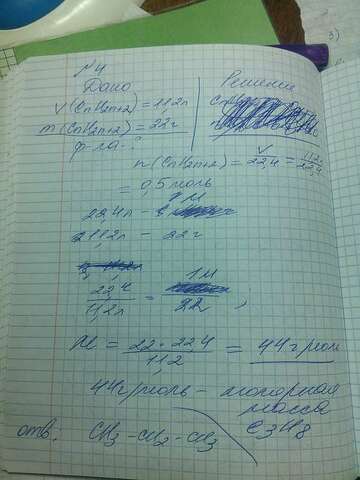 №4
Дано
Решение
V(CnH2n+2) = 11,2л
m(CnH2n+2) = 22г
ф-ла - ?
n(CnH2n+2) = V/22,4 = 11,2/22,4
= 0,5 моль
22,4л - 1М
11,2л - 22г
22,4/11,2л = 1М/22 ,
M = 22 · 22,4 / 11,2 = 44г/моль
44г/моль - молярная
масса
C3H8
отв: CH3-CH2-CH3